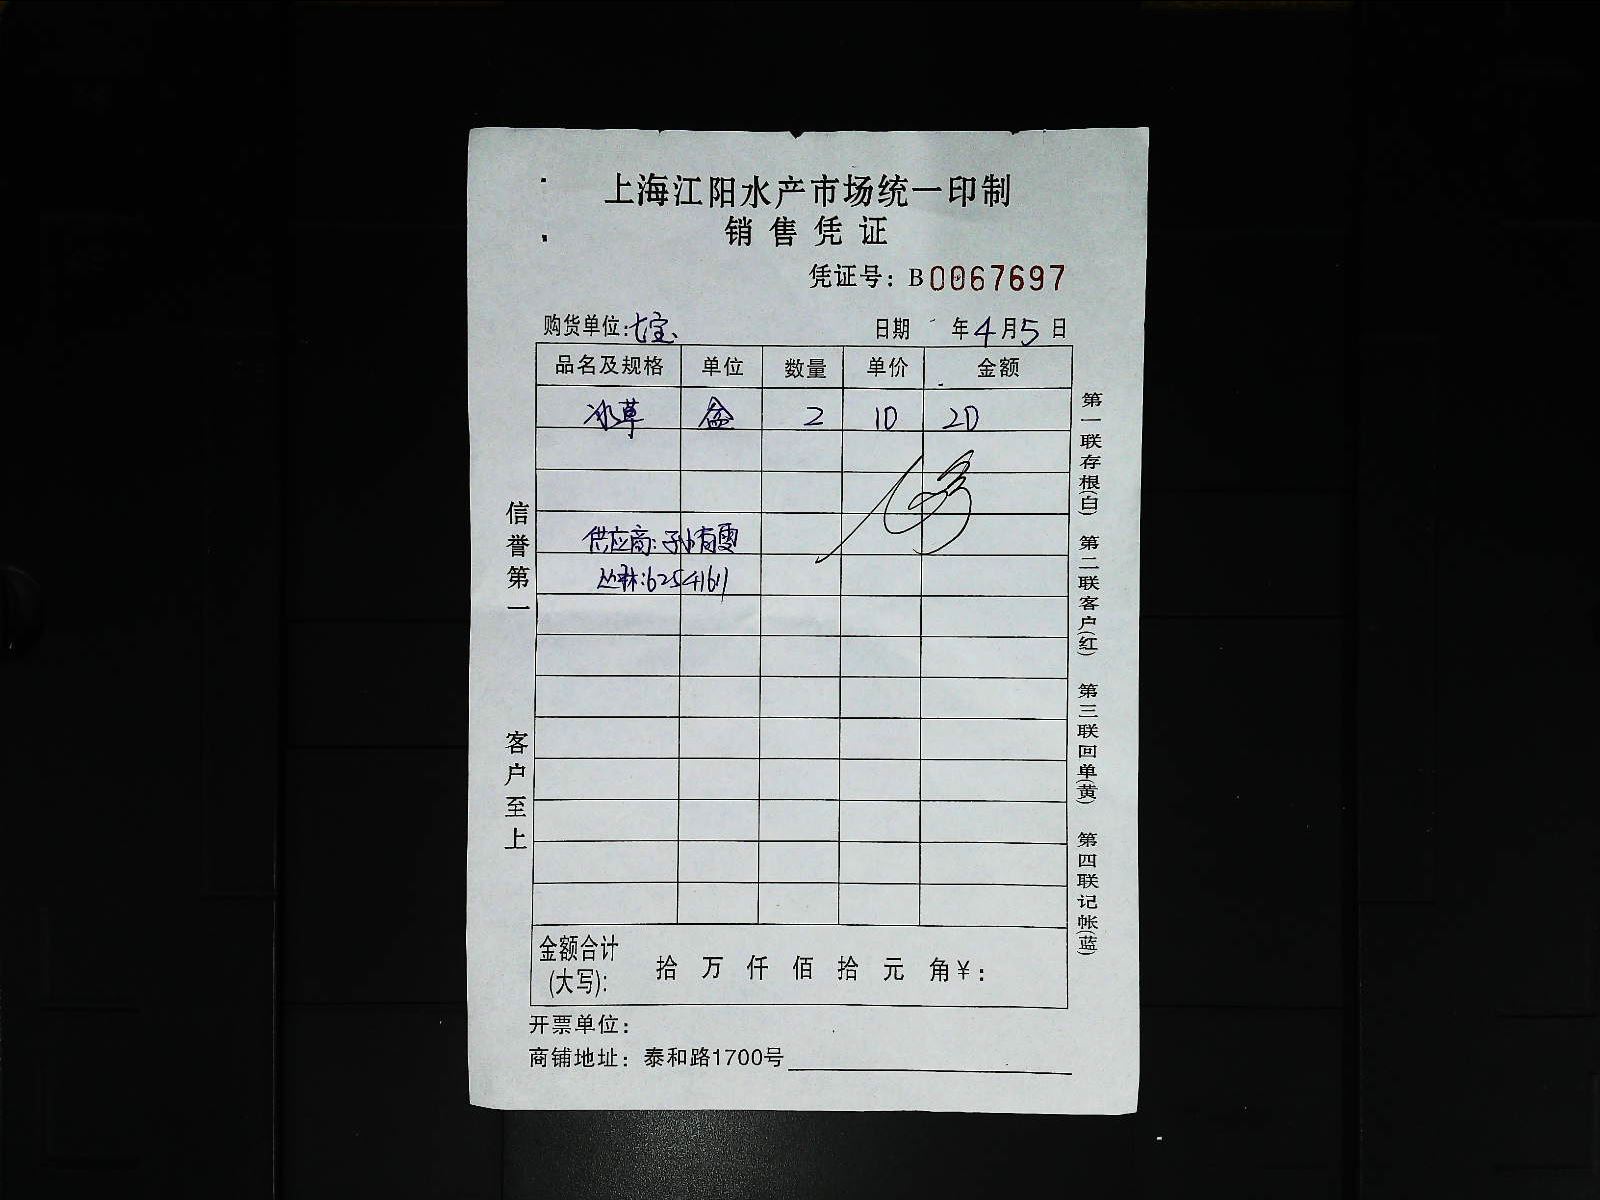 上海江阳水产市场统一印制
销售凭证
凭证号：B0067697
购货单位:七宝
日期 年4月5日
品名及规格 单位 数量 单价 金额
冰草 盒 2 10 20
供应商:孙有雯
丛林:6254161
金额合计(大写): 拾 万 仟 佰 拾 元 角￥:
开票单位：
商铺地址：泰和路1700号
信誉第一
客户至上
第一联存根(白)
第二联客户(红)
第三联回单(黄)
第四联记帐(蓝)